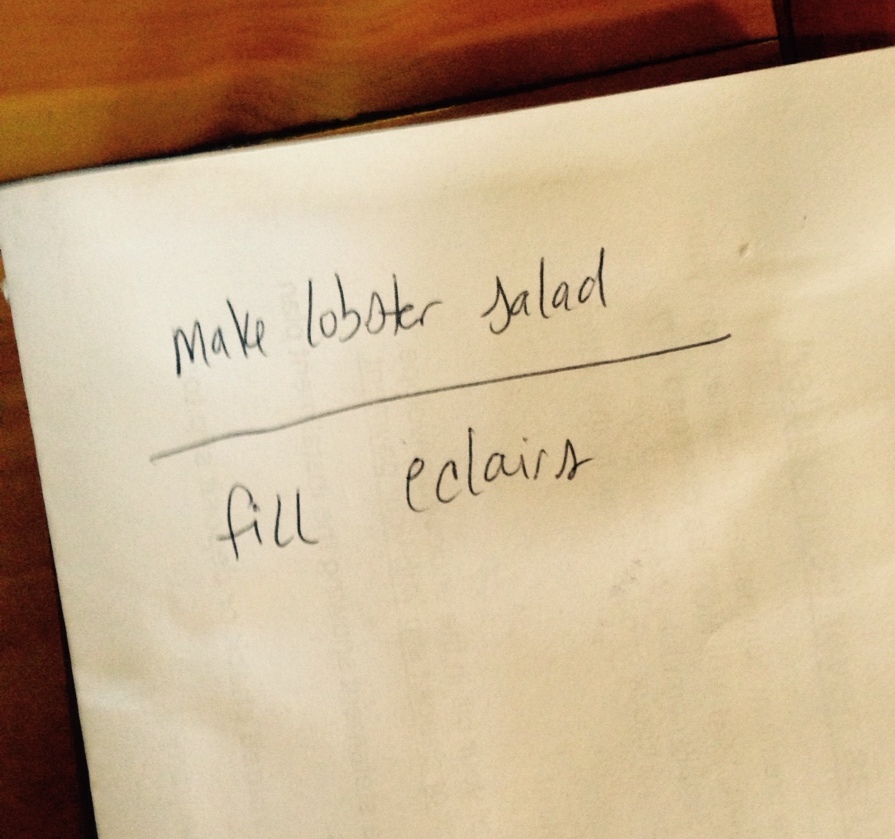 make lobster salad
fill eclairs